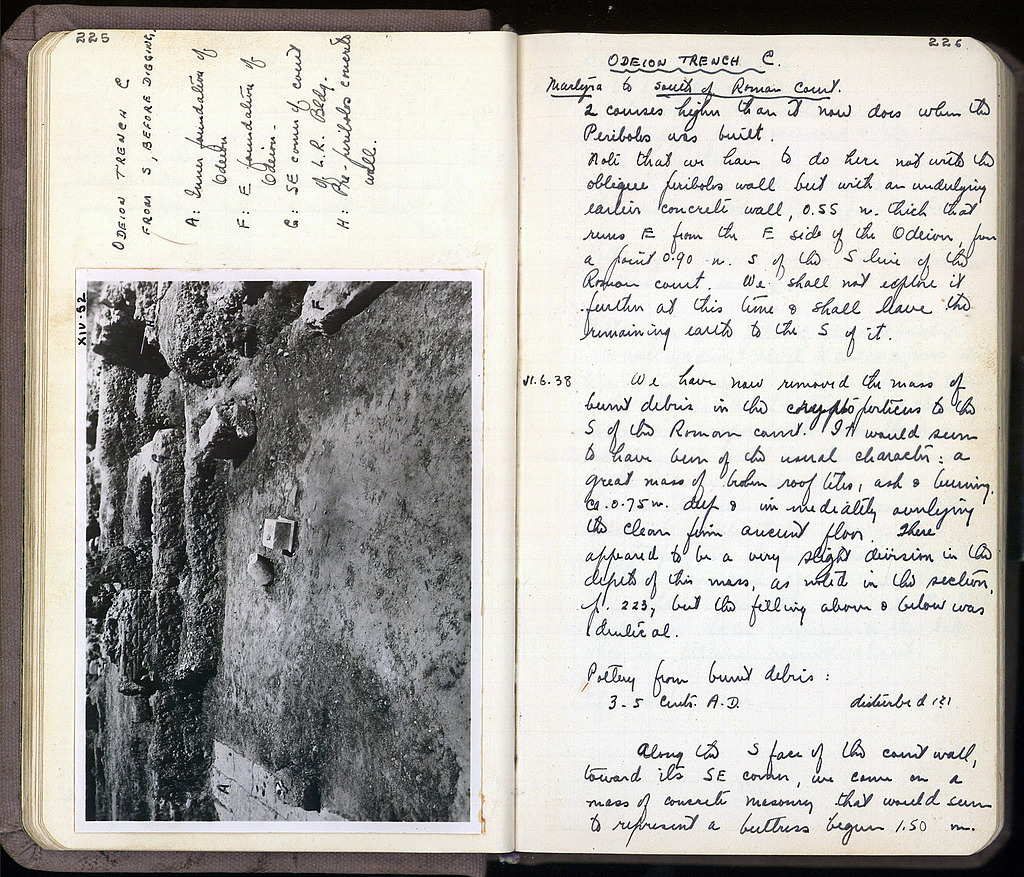 225
ODEION TRENCH C
FROM S, BEFORE DIGGING.
A: Inner foundation of
Odeion
F: E foundation of
Odeion.
G: SE corner of court
of L.R. Bldg.
H: Pre-peribolos concrete
wall.
XIV-92
H
F
G
A
226
ODEION TRENCH C.
to south of Roman Court.
2 courses higher than it now does when the
Peribolos was built.
Note that we have to do here not with the
oblique peribolos wall but with an underlying
earlier concrete wall, 0.55 m. thick that
runs E from the E side of the Odeion, from
a point 0.90 m. S of the S line of the
Roman court. We shall not explore it
further at this time & shall leave the
remaining earth to the S of it.
VI.6.38 We have now removed the mass of
burnt debris in the cryptoporticus to the
S of the Roman court. It would seem
to have been of the usual character: a
great mass of broken roof tiles, ash & burning,
ca. 0.75 m. deep & immediately overlying
the clean firm ancient floor. There
appeared to be a very slight division in the
depth of this mass, as noted in the section,
p. 223, but the filling above & below was
identical.
Pottery from burnt debris:
3-5 Cents. A.D. disturbed
Along the S face of the court wall,
toward its SE corner, we came on a
mass of concrete masonry that would seem
to represent a buttress begun 1.50 m.